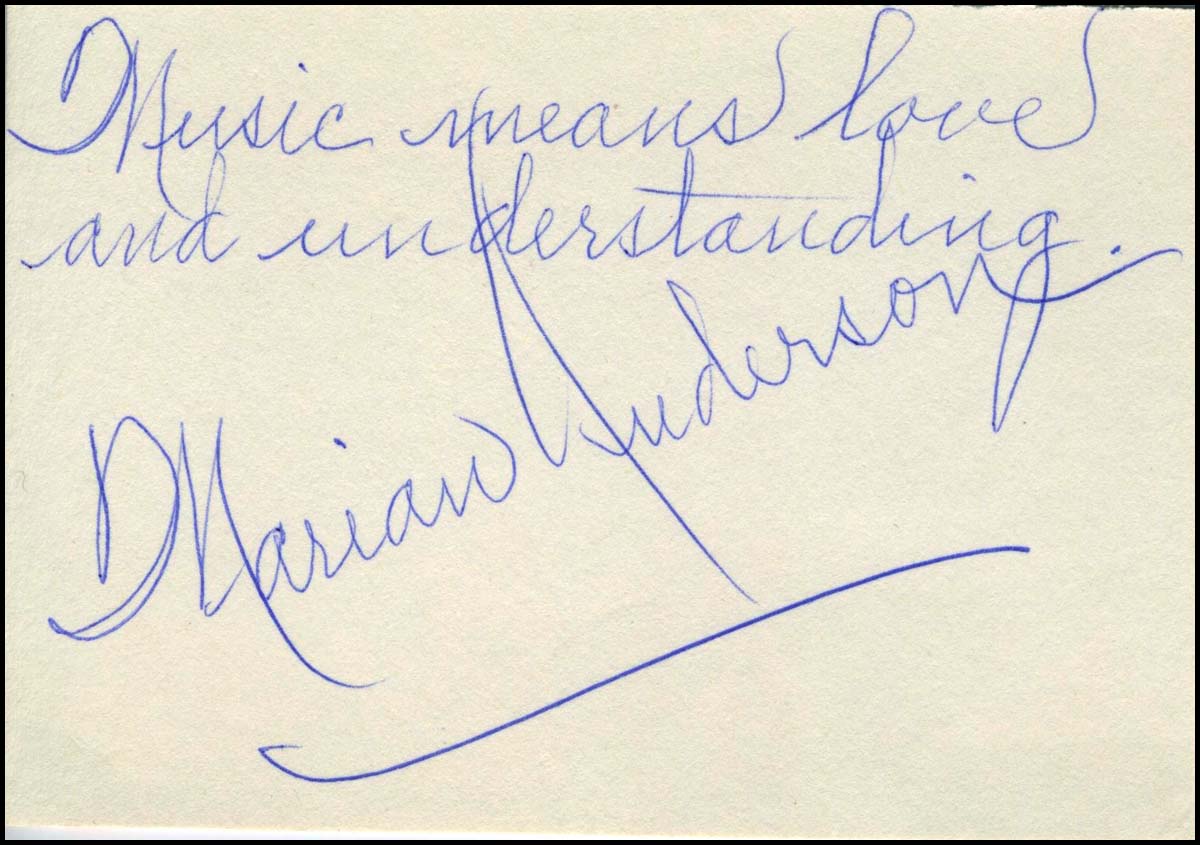 Music means love
and understanding.
Marian Anderson